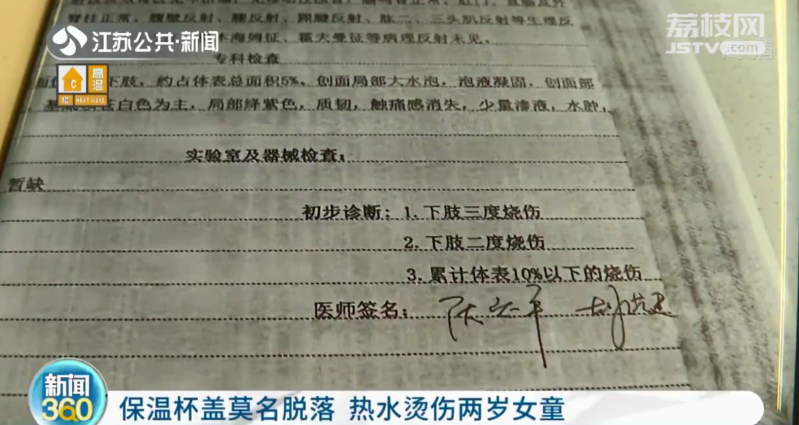 江苏公共·新闻
荔枝网
JSTV.com
高温
脊柱正常，腹壁反射、膝反射、跟腱反射、肱二、三头肌反射等生理反
霍夫曼征等病理反射未见。
专科检查
下肢，约占体表总面积5%，创面局部大水泡，泡液凝固，创面部
苍白色为主，局部绛紫色，质韧，触痛感消失，少量渗液，水肿，
实验室及器械检查：
暂缺
初步诊断：1.下肢三度烧伤
2.下肢二度烧伤
3.累计体表10%以下的烧伤
医师签名：
新闻
360
保温杯盖莫名脱落 热水烫伤两岁女童